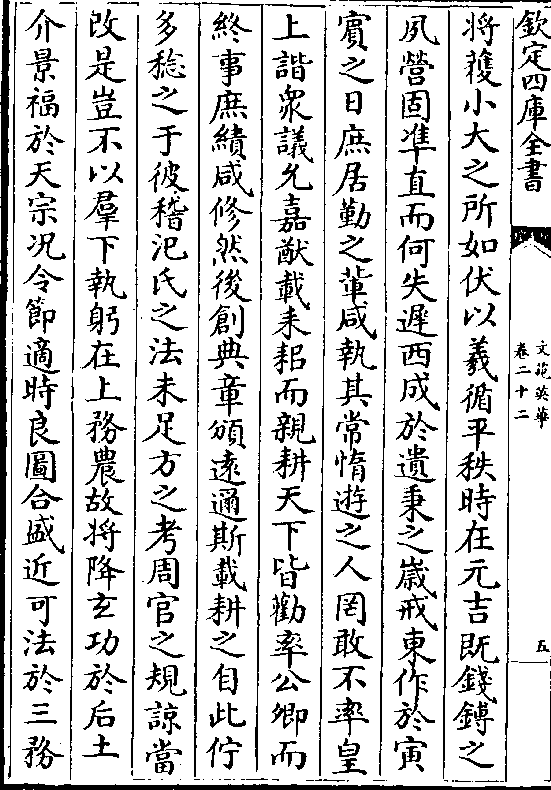 欽定四庫全書
文苑英華
卷二十二
五
将蒦小大之所如伏以羲循平秩時在元吉既錢鎛之
夙營固準直而何失遲西成於遺秉之嵗戒東作於寅
賓之日庶居勤之軰咸執其常惰遊之人罔敢不率皇
上諧衆議允嘉猷載耒耜而親耕天下皆勸率公卿而
終事庶績咸修然後創典章頒遠邇斯載耕之自此佇
多稔之于彼稽汜氏之法未足方之考周官之規諒當
改是豈不以羣下執躬在上務農故将降玄功於后土
介景福於天宗况令節適時良圖合盛近可法於三務